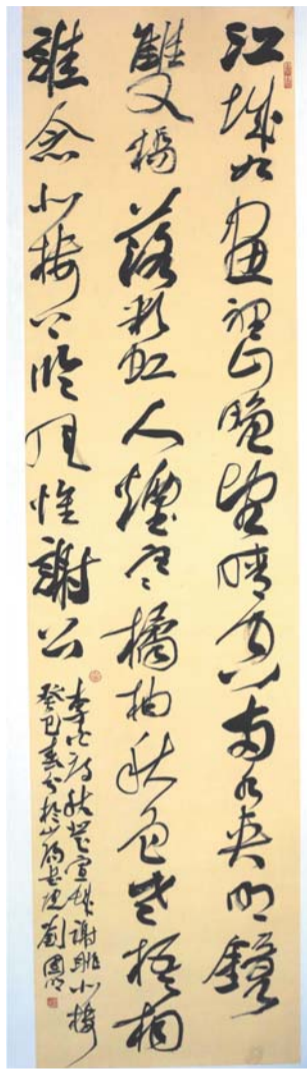 江城如畫裡山晚望晴空兩水夾明鏡
雙橋落彩虹人煙寒橘柚秋色老梧桐
誰念北樓上臨風懷謝公
李白詩秋登宣城謝朓北樓
癸巳春分於山 劉國